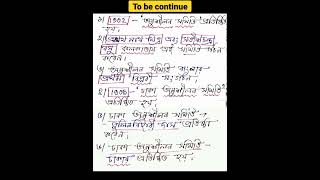 To be continue
১) 1902 - 'অনুশীলন সমিতি' প্রতিষ্ঠিত
হয়।
২) প্রমথ নাথ মিত্র এবং সতীশচন্দ্র
বসু কলকাতায় এই সমিতি গঠন
করেন।
৩) অনুশীলন সমিতি বাংলার
প্রথম বিপ্লবী সংগঠন।
1906 - 'ঢাকা অনুশীলন সমিতি'
প্রতিষ্ঠিত হয়।
ঢাকা অনুশীলন সমিতি -
পুলিনবিহারী দাস প্রতিষ্ঠা
করেন।
ঢাকা অনুশীলন সমিতি -
ঢাকায় প্রতিষ্ঠিত হয়।